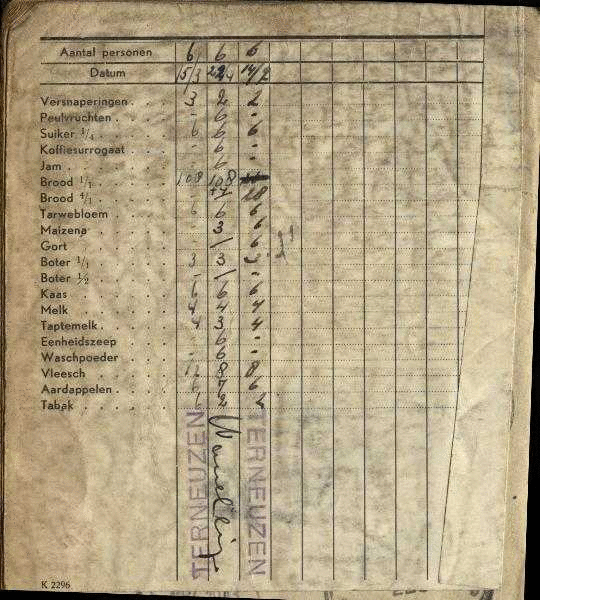 Aantal personen 6 6 6
Datum 15/3 14/2
Versnaperingen 3 2 2
Peulvruchten - 6 -
Suiker ¼ 6 6 6
Koffiesurrogaat - 6 -
Jam - 6 -
Brood 1/1 108 108
Brood 4/1
Tarwebloem 6 6 6
Maizena - 3 6
Gort - / 6
Boter 1/1 3 3
Boter ½ - / -
Kaas 6 6 6
Melk 4 4 4
Taptemelk 4 3 4
Eenheidszeep - 6 -
Waschpoeder - 6 -
Vleesch 8 8
Aardappelen 6 7 6
Tabak 2
TERNEUZEN
TERNEUZEN
K 2296